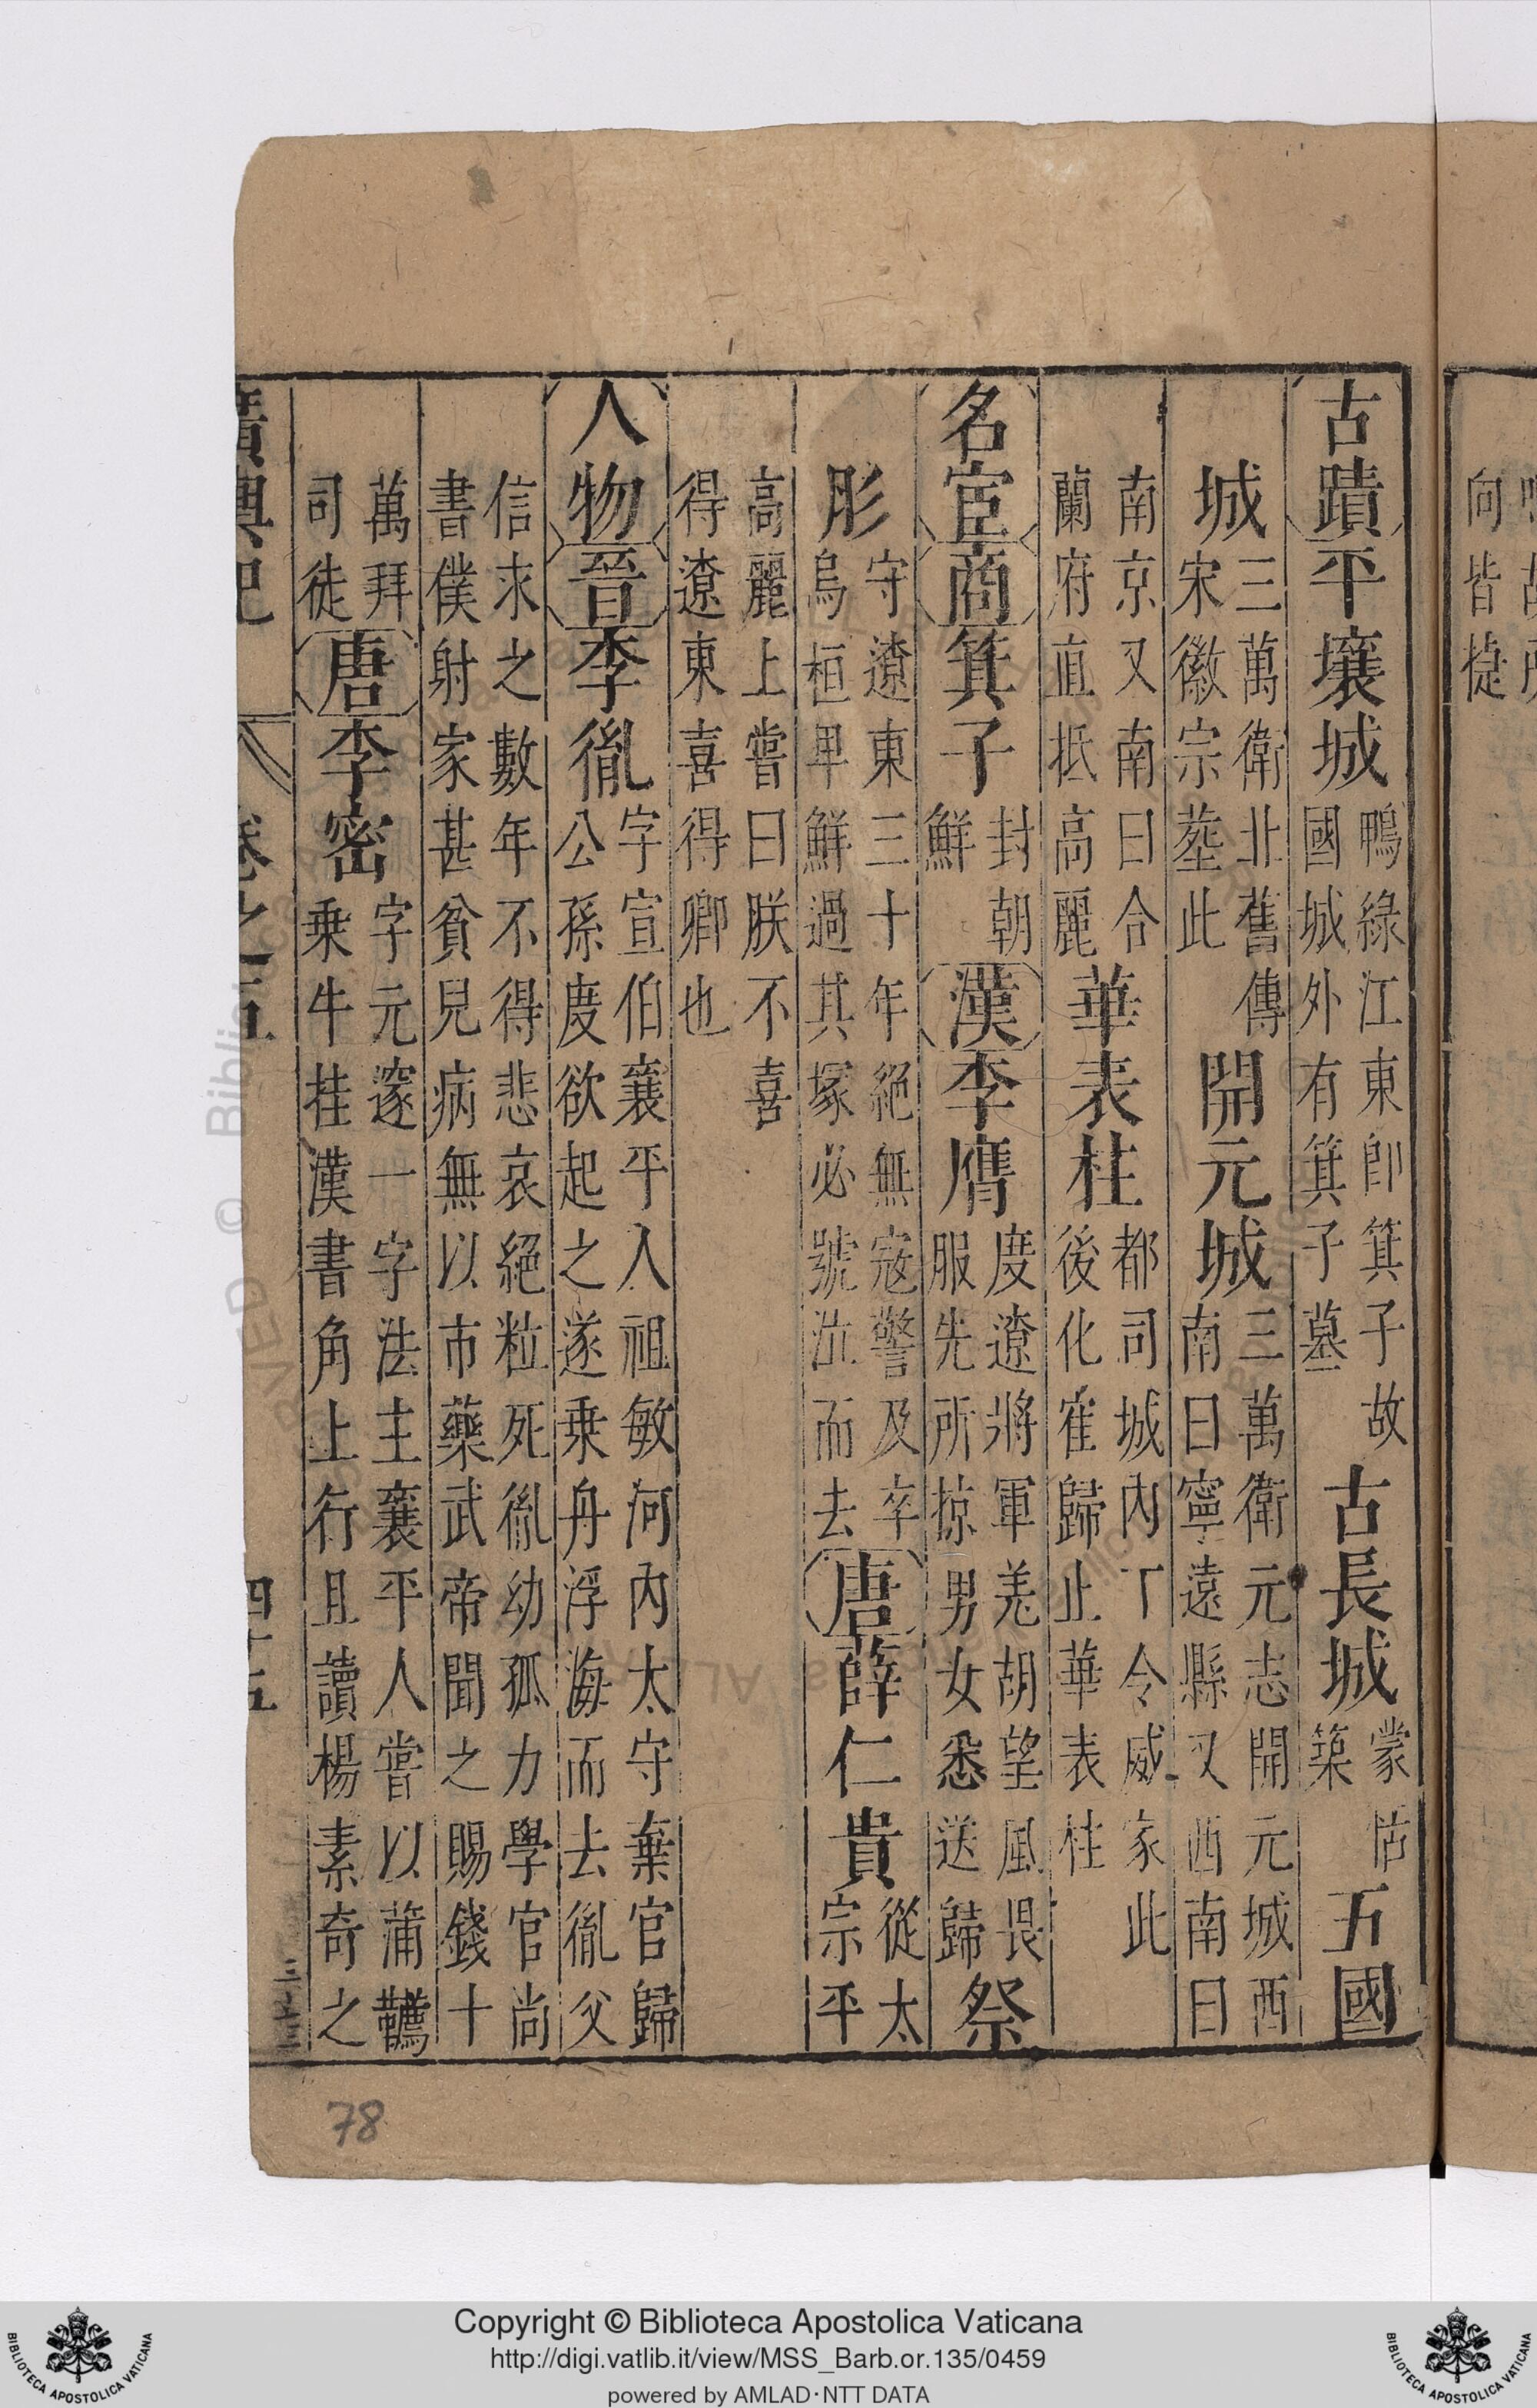 古蹟平壤城鴨綠江東卽箕子故國城外有箕子墓古長城蒙恬築五國
城三萬衛北舊傳宋徽宗葬此開元城三萬衛元志開元城西南曰寧遠縣又西南曰
南京又南曰合蘭府直抵高麗華表柱都司城內丁令威家此後化隺歸止華表柱
名宦商箕子封朝鮮漢李膺度遼將軍羌胡望風畏服先所掠男女悉送歸祭
肜守遼東三十年絕無寇警及卒烏桓鮮卑過其塚必號泣而去唐薛仁貴從太宗平
高麗上嘗曰朕不喜得遼東喜得卿也
人物晉李胤字宣伯襄平人祖敏河內太守棄官歸公孫度欲起之遂乗舟浮海而去胤父
信求之數年不得悲哀絕粒死胤幼孤力學官尚書僕射家甚貧兒病無以市藥武帝聞之賜錢十
萬拜司徒唐李密字元邃一字法主襄平人嘗以蒲韉乗牛挂漢書角上行且讀楊素奇之
廣輿記 卷之五 四十五
向皆捷
三七三
78
Copyright © Biblioteca Apostolica Vaticana
http://digi.vatlib.it/view/MSS_Barb.or.135/0459
powered by AMLAD·NTT DATA
BIBLIOTECA APOSTOLICA VATICANA
BIBLIOTECA APOSTOLICA VATICANA